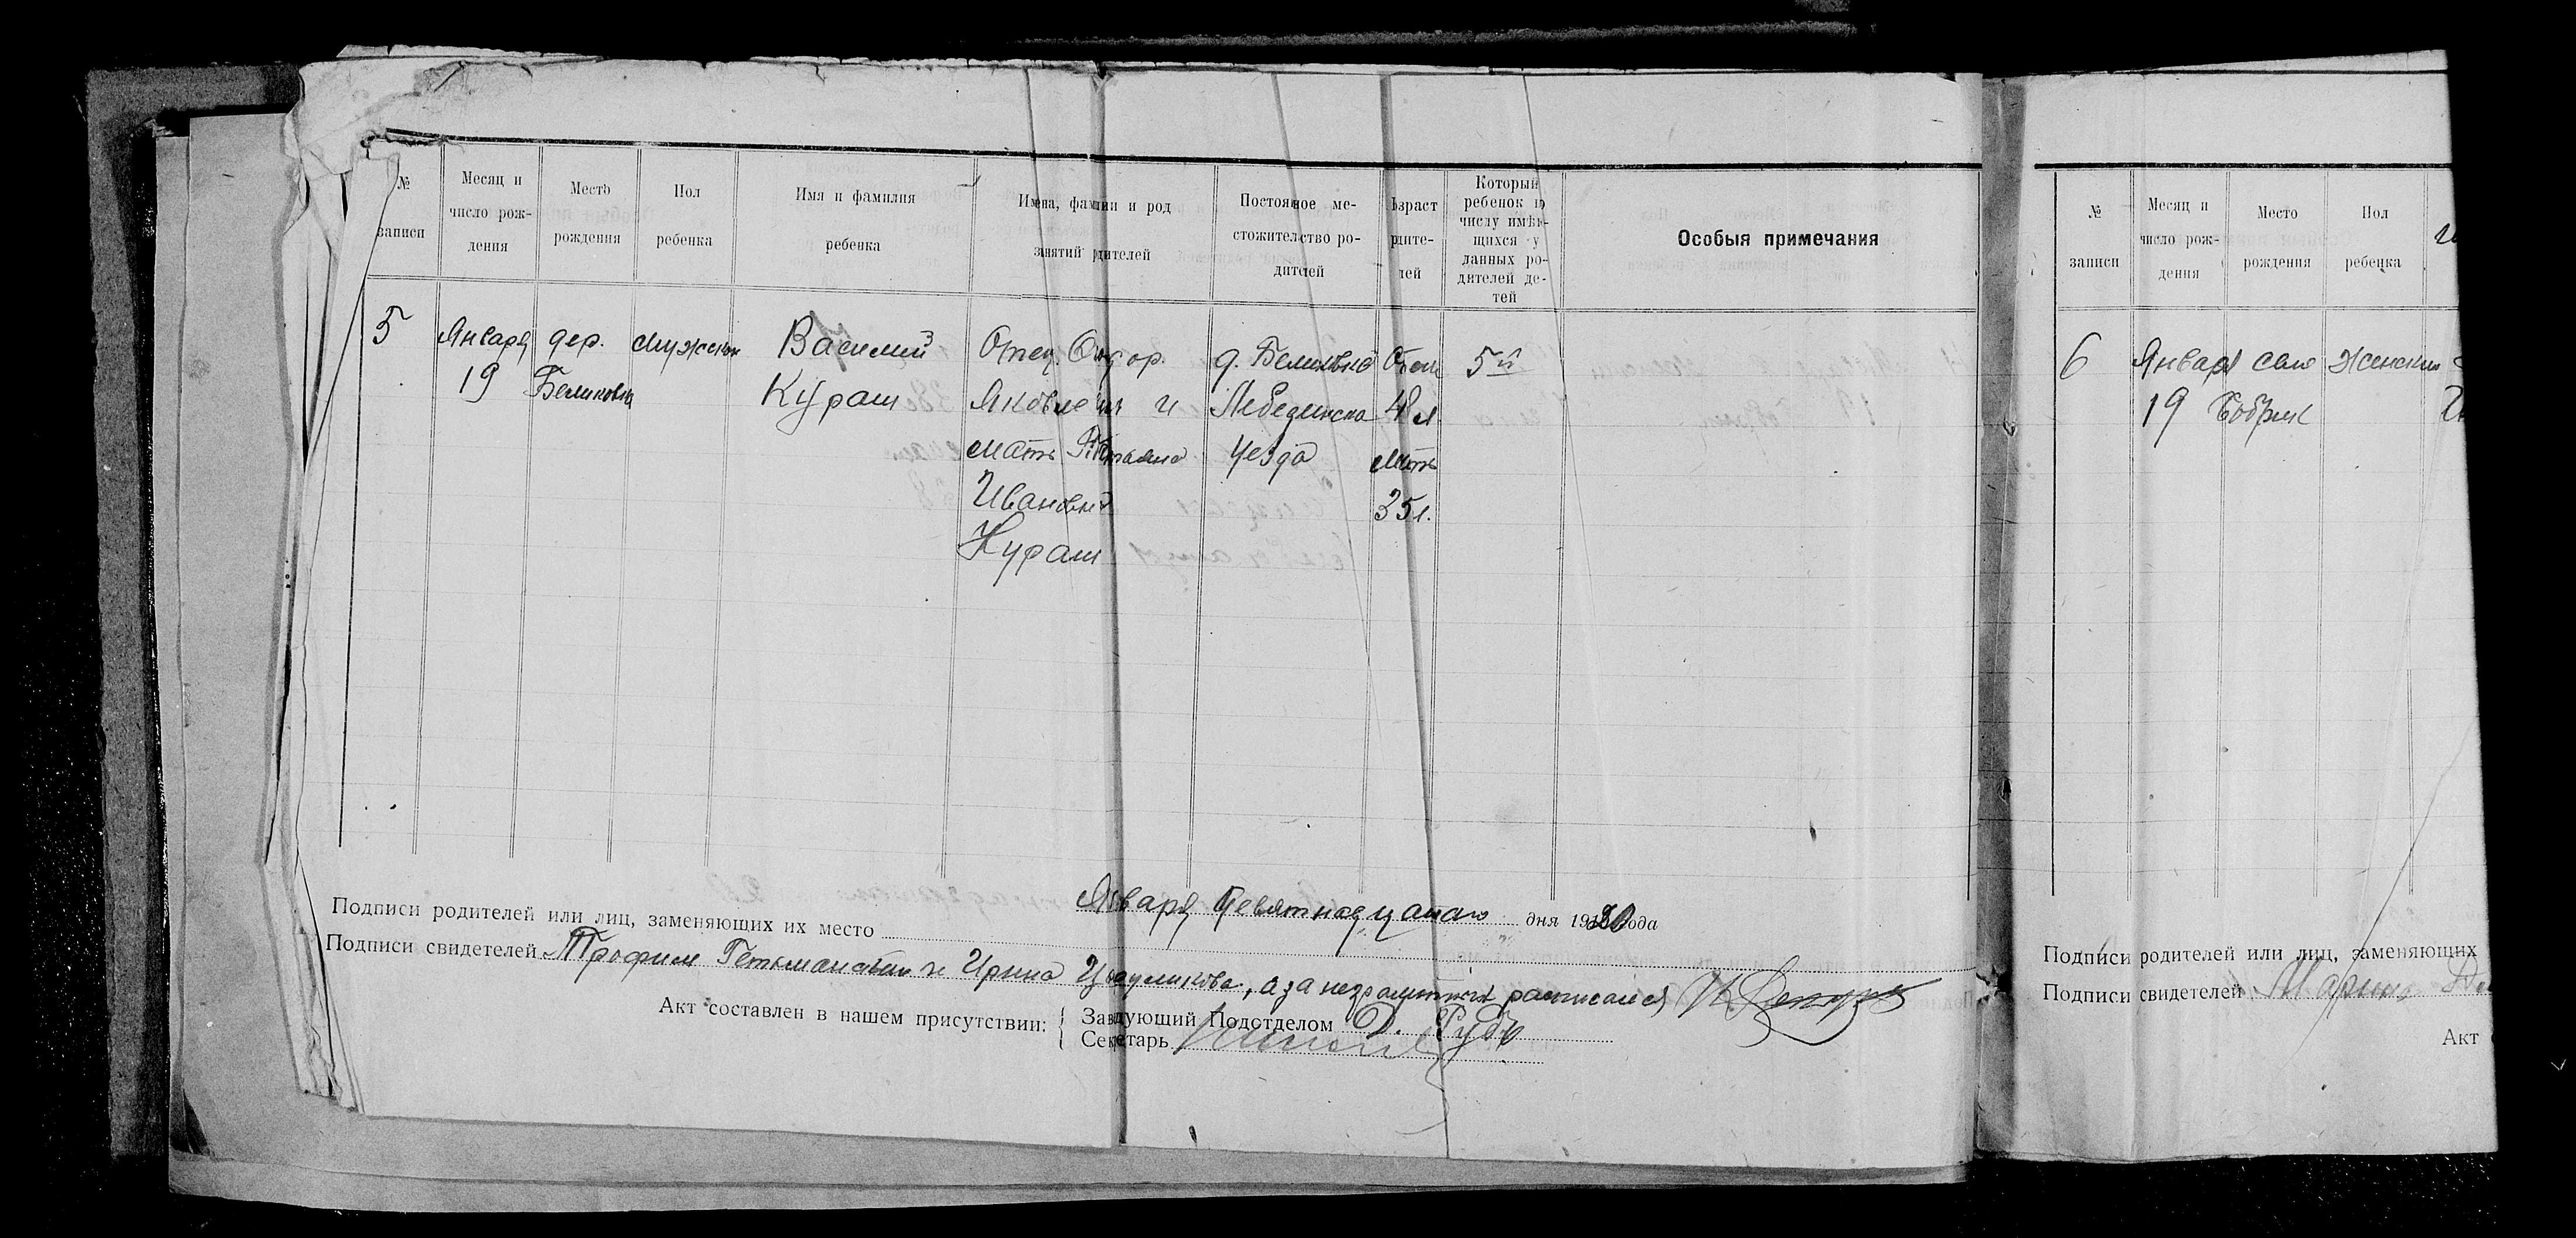 № записи
Месяц и число рождения
Место рождения
Пол ребенка
Имя и фамилия ребенка
Имена, фамилии и род занятий родителей
Постоянное местожительство родителей
Возраст родителей
Который ребенок по числу имѣющихся у данных родителей детей
Особыя примечания
5
Января
19
дер.
Беликовка
мужской
Василий
Кураш
Отец Федор
Яковлевич и
мать Татьяна
Ивановна
Кураш
д. Беликовка
Лебединско
уезда
Отец
48 л
мать
35 л.
5й
Января девятнадцатаго дня 1920 года
Подписи родителей или лиц, заменяющих их место
Подписи свидетелей Трофим Гетьманский и Ирина, а за неграмотных расписался
Акт составлен в нашем присутствии:
Заведующий Подотделом Рудь
Секретарь
№ записи
Месяц и число рождения
Место рождения
Пол ребенка
6
Января
19
село
Бобрик
Женский
Подписи родителей или лиц, заменяющих
Подписи свидетелей
Акт